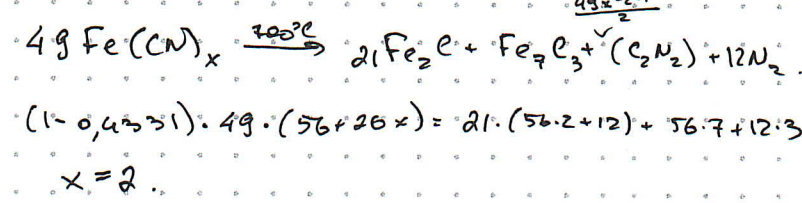 49x-24
2
49 Fe(CN)x 700°C → 21Fe₂C + Fe₇C₃ + (C₂N₂) + 12N₂.
(1-0,4331)·49·(56+26x) = 21·(56·2+12) + 56·7+12·3
x = 2.